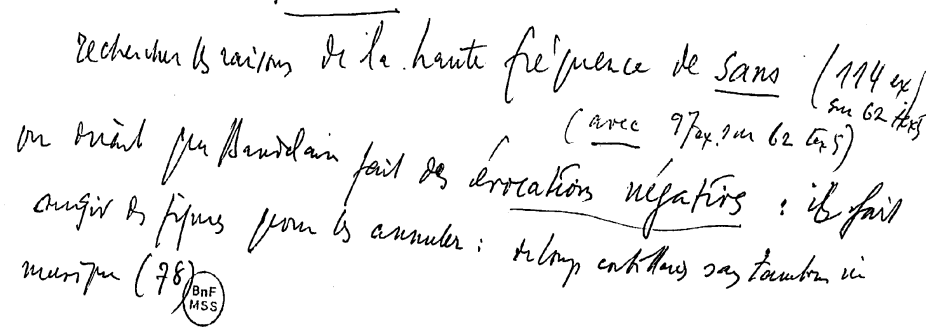 rechercher les raisons de la haute fréquence de sans (114 ex)
sur 62 textes
(avec 97 ex. sur 62 textes)
on dirait que Baudelaire fait des évocations négatives : il fait
surgir des figures pour les annuler : de longs corbillards sans tambours ni
musique (78)
BnF
MSS